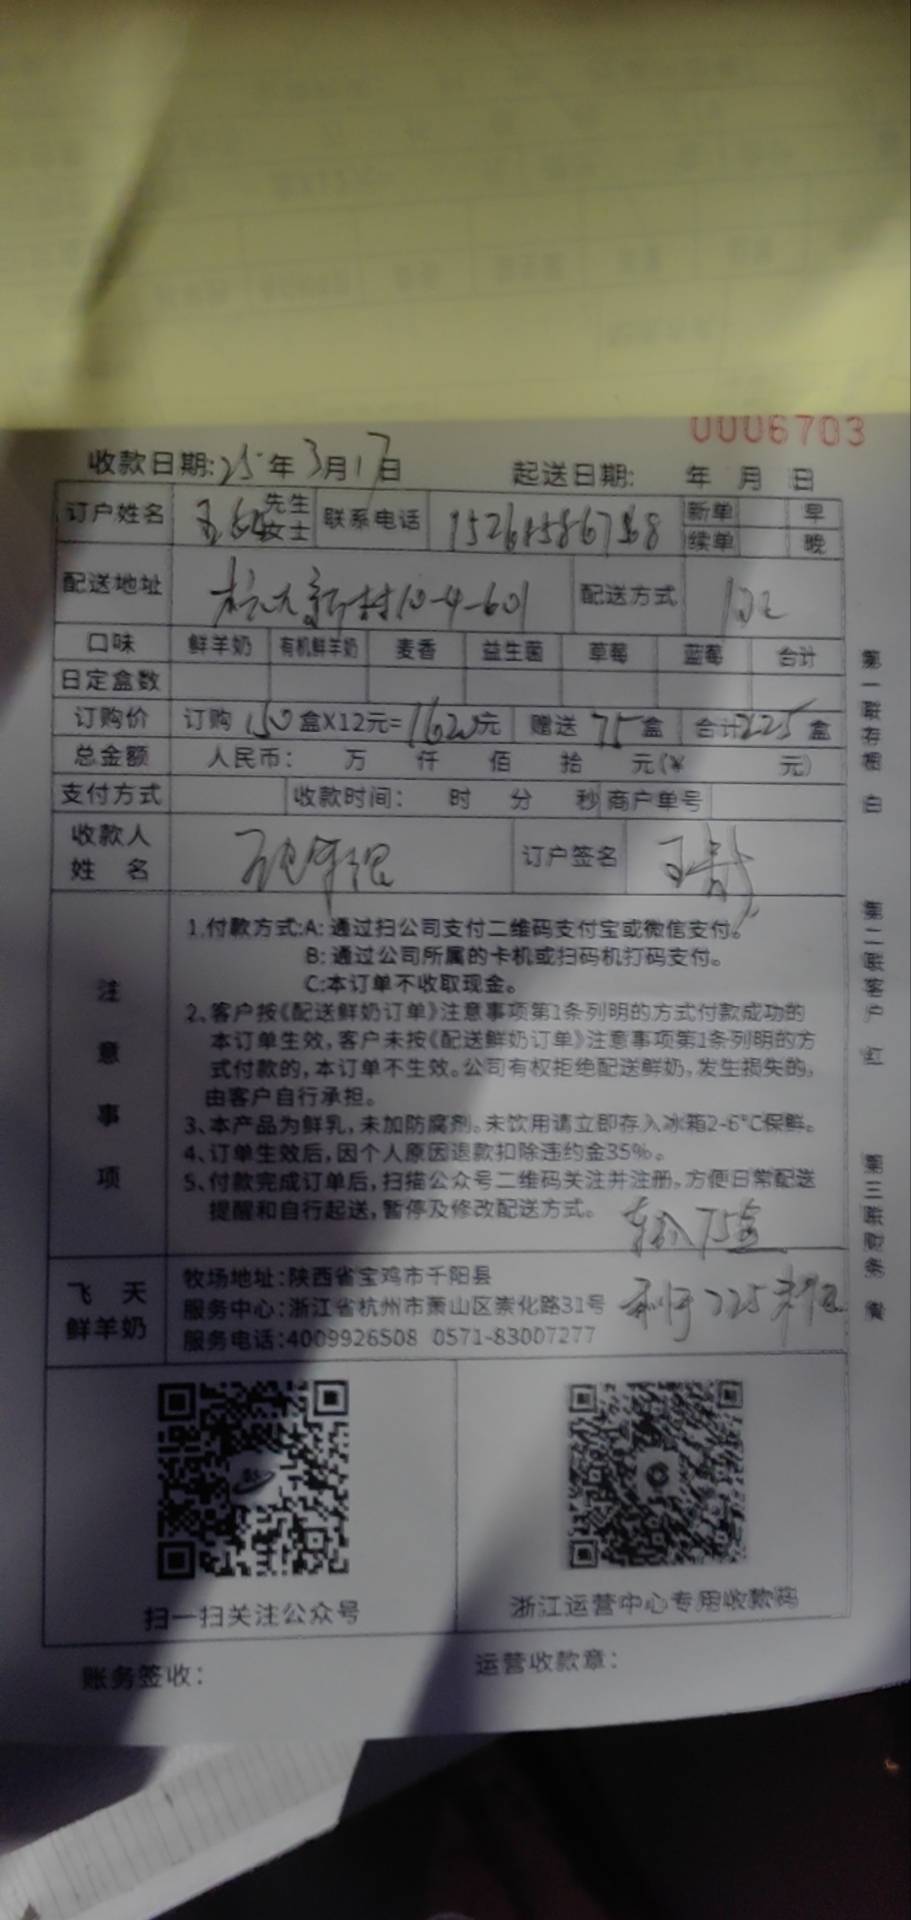 0006703
收款日期:25年3月17日 起送日期: 年 月 日
订户姓名 王 先生 女士 联系电话 新单 早
续单 晚
配送地址 杭大新村10-4-601 配送方式
口味 鲜羊奶 有机鲜羊奶 麦香 益生菌 草莓 蓝莓 合计
日定盒数
订购价 订购150盒X12元=1620元 赠送75盒 合计225盒
总金额 人民币: 万 仟 佰 拾 元(¥ 元)
支付方式 收款时间: 时 分 秒 商户单号
收款人
姓 名 订户签名 王
注意事项
1.付款方式:A: 通过扫公司支付二维码支付宝或微信支付。
B: 通过公司所属的卡机或扫码机打码支付。
C:本订单不收取现金。
2、客户按《配送鲜奶订单》注意事项第1条列明的方式付款成功的
本订单生效,客户未按《配送鲜奶订单》注意事项第1条列明的方
式付款的,本订单不生效。公司有权拒绝配送鲜奶,发生损失的,
由客户自行承担。
3、本产品为鲜乳,未加防腐剂。未饮用请立即存入冰箱2-6°C保鲜。
4、订单生效后,因个人原因退款扣除违约金35%。
5、付款完成订单后,扫描公众号二维码关注并注册,方便日常配送
提醒和自行起送,暂停及修改配送方式。
75盒
飞天
鲜羊奶
牧场地址:陕西省宝鸡市千阳县
服务中心:浙江省杭州市萧山区崇化路31号
服务电话:4009926508 0571-83007277
225
扫一扫关注公众号
浙江运营中心专用收款码
账务签收:
运营收款章:
第一联存根 白
第二联客户 红
第三联财务 黄